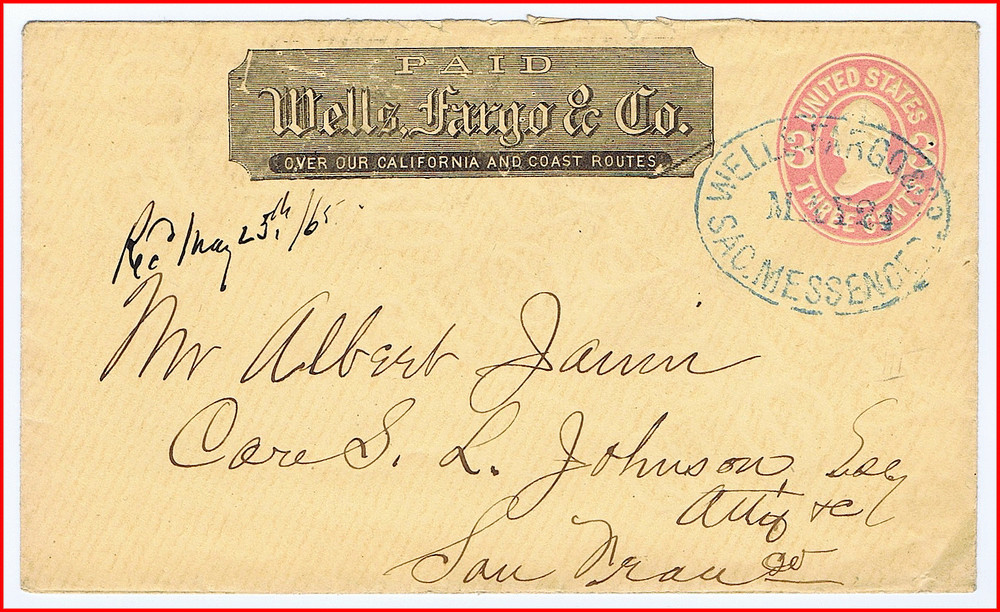 PAID
Wells, Fargo & Co.
OVER OUR CALIFORNIA AND COAST ROUTES.
UNITED STATES
3 3
THREE CENTS
WELLS FARGO & Co
MAY 24
SAC. MESSENGE
Rec'd May 25th /65
Mr Albert Janin
Care S. L. Johnson, Esq
Atty &c
San Franco